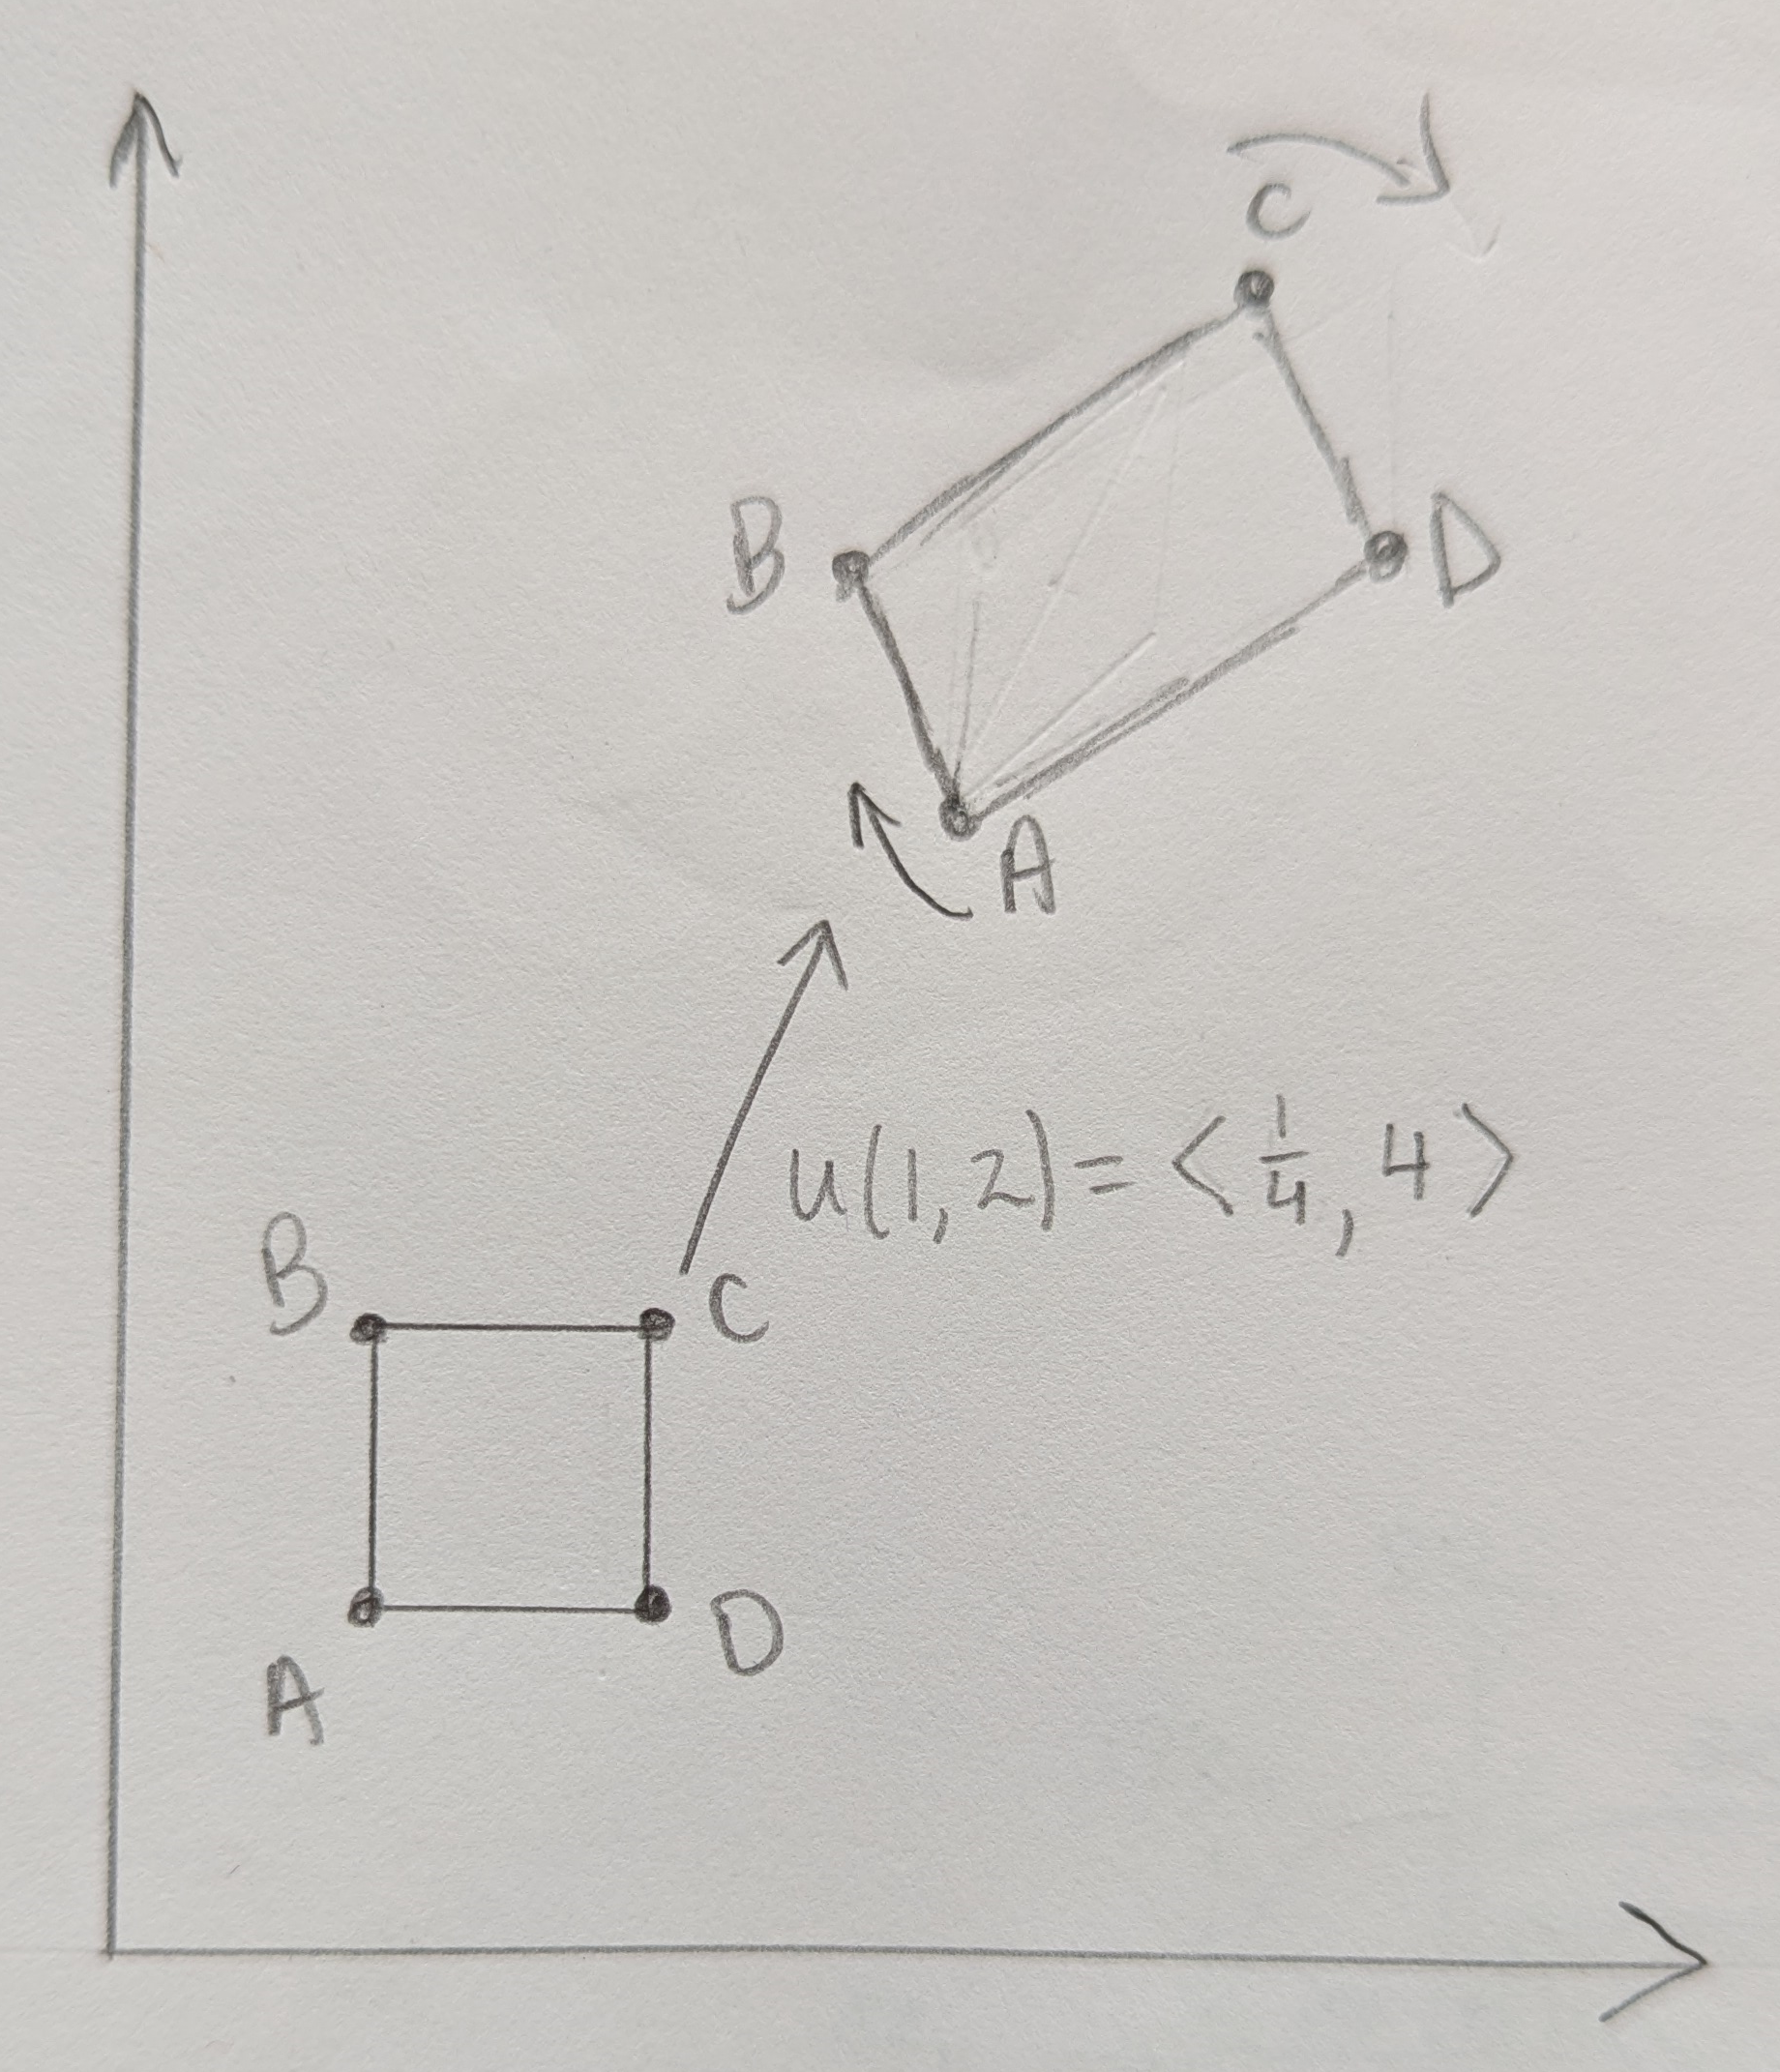 C
B
D
A
u(1,2) = < 1/4, 4 >
B
C
A
D